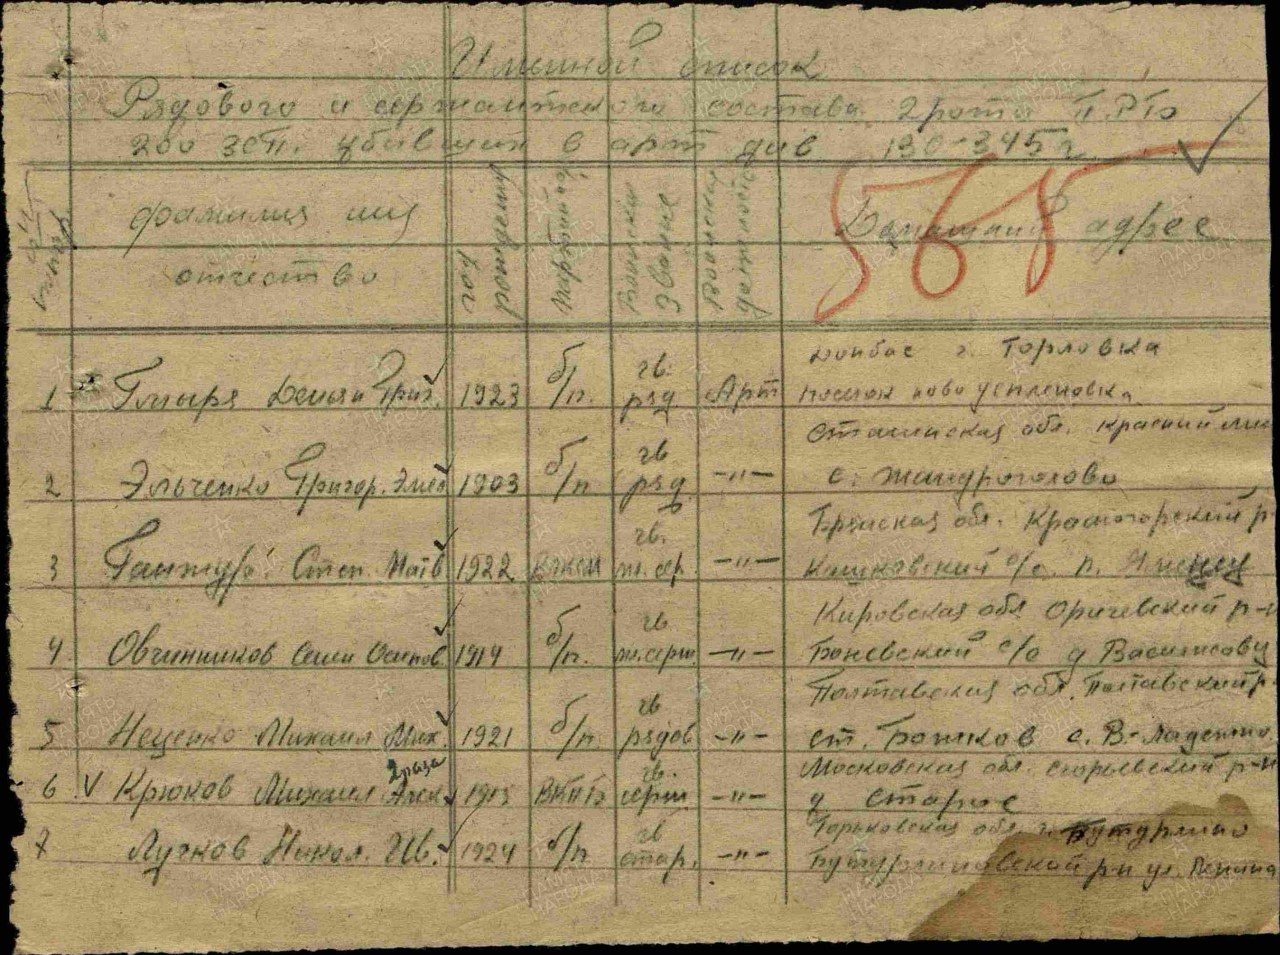 Именной список
Рядового и сержантского состава 2 роты П.РТо
200 ЗСП. убывших в арт див 130-345 г.
565
№ п/п
фамилия имя
отчество
год рождения
партийность
воинское звание
военная
Домашний адрес
Донбас г. Горловка
1 Гмыря Демьян Григ. 1923 б/п. гв. ряд. Арт поселок ново
Сталинская обл. Красный Лим
2 Эльченко Григор. Емел 1903 б/п гв ряд. -"- с. Шандроголово
Брянская обл. Красногорский р-
3 Степ. Матв 1922 ВЛКСМ гв. мл. сер. -"- с/с. п.
Кировская обл Оричевский р-н
4 Овчинников Семен Осипов. 1914 б/п. гв мл. серж. -"- с/с д
Полтавская обл. Полтавский р-
5 Неценко Михаил Мих. 1921 б/п. гв рядов -"- ст. Божков с. В.-
2 раза
Московская обл. Егорьевский р-н
6 V Крюков Михаил Алек. 1913 ВКПБ гв. серж -"- д Старое
Горьковская обл. г. Бутурлино
7 Лучков Никол. Ив. 1924 б/п гв стар. -"- Бутурлиновский р-н ул Ленина